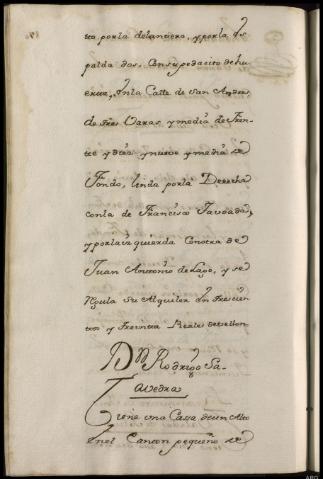 to por la delantera, y por la es
palda dos. Con su pedacito de hu
erta, En la Calle de San Andres
de tres Varas y media de Fren
te y diez y nueve y media de
Fondo, linda por la Derecha
con la de Francisco Taboada,
y por la izquierda con otra de
Juan Antonio de Lago, y se
Regula su Alquiler en trescien
tos y treinta Reales de vellon
Dn Rodrigo Sa-
avedra
Tiene una Casa de un Alto
en el Canton pequeño de